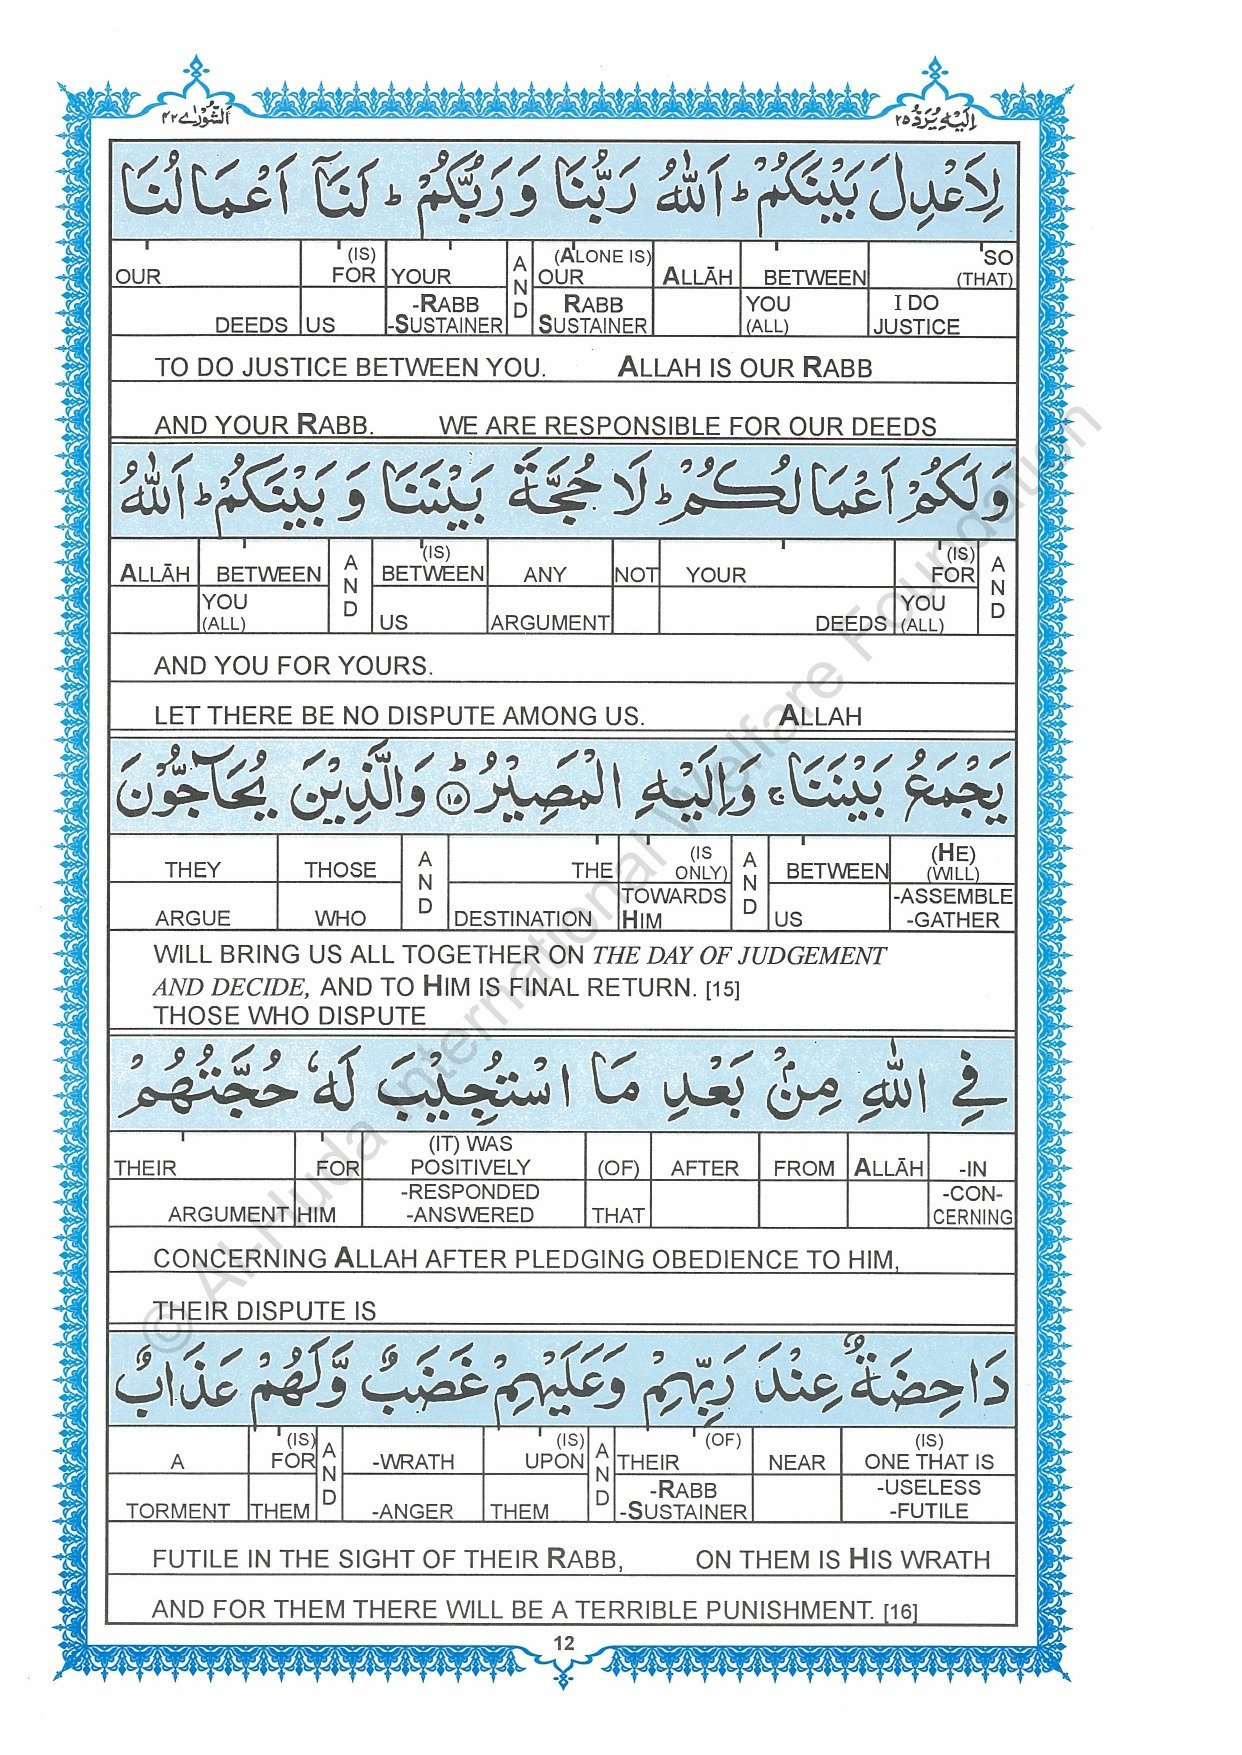 اَلشُّوْرٰى ٤٢
اِلَيْهِ يُرَدُّ ٢٥
لِاَعْدِلَ بَيْنَكُمْ ؕ اَللّٰهُ رَبُّنَا وَ رَبُّكُمْ ؕ لَنَاۤ اَعْمَالُنَا
OUR (IS) FOR YOUR AND (ALONE IS) OUR ALLĀH BETWEEN SO (THAT)
DEEDS US -RABB -SUSTAINER RABB SUSTAINER YOU (ALL) I DO JUSTICE
TO DO JUSTICE BETWEEN YOU. ALLAH IS OUR RABB
AND YOUR RABB. WE ARE RESPONSIBLE FOR OUR DEEDS
وَ لَكُمْ اَعْمَالُكُمْ ؕ لَا حُجَّةَ بَيْنَنَا وَ بَيْنَكُمْ ؕ اَللّٰهُ
ALLĀH BETWEEN AND (IS) BETWEEN ANY NOT YOUR (IS) FOR AND
YOU (ALL) US ARGUMENT DEEDS YOU (ALL)
AND YOU FOR YOURS.
LET THERE BE NO DISPUTE AMONG US. ALLAH
يَجْمَعُ بَيْنَنَا ۚ وَ اِلَيْهِ الْمَصِيْرُ ؕ ١٥ وَ الَّذِيْنَ يُحَآجُّوْنَ
THEY THOSE AND THE (IS ONLY) AND BETWEEN (HE) (WILL)
ARGUE WHO DESTINATION TOWARDS HIM US -ASSEMBLE -GATHER
WILL BRING US ALL TOGETHER ON THE DAY OF JUDGEMENT
AND DECIDE, AND TO HIM IS FINAL RETURN. [15]
THOSE WHO DISPUTE
فِي اللّٰهِ مِنْۢ بَعْدِ مَا اسْتُجِيْبَ لَهٗ حُجَّتُهُمْ
THEIR FOR (IT) WAS POSITIVELY (OF) AFTER FROM ALLĀH -IN
ARGUMENT HIM -RESPONDED -ANSWERED THAT -CON-CERNING
CONCERNING ALLAH AFTER PLEDGING OBEDIENCE TO HIM,
THEIR DISPUTE IS
دَاحِضَةٌ عِنْدَ رَبِّهِمْ وَ عَلَيْهِمْ غَضَبٌ وَّ لَهُمْ عَذَابٌ
A (IS) FOR AND -WRATH (IS) UPON AND THEIR (OF) NEAR (IS) ONE THAT IS
TORMENT THEM -ANGER THEM -RABB -SUSTAINER -USELESS -FUTILE
FUTILE IN THE SIGHT OF THEIR RABB, ON THEM IS HIS WRATH
AND FOR THEM THERE WILL BE A TERRIBLE PUNISHMENT. [16]
12
© Al-Huda International Welfare Foundation